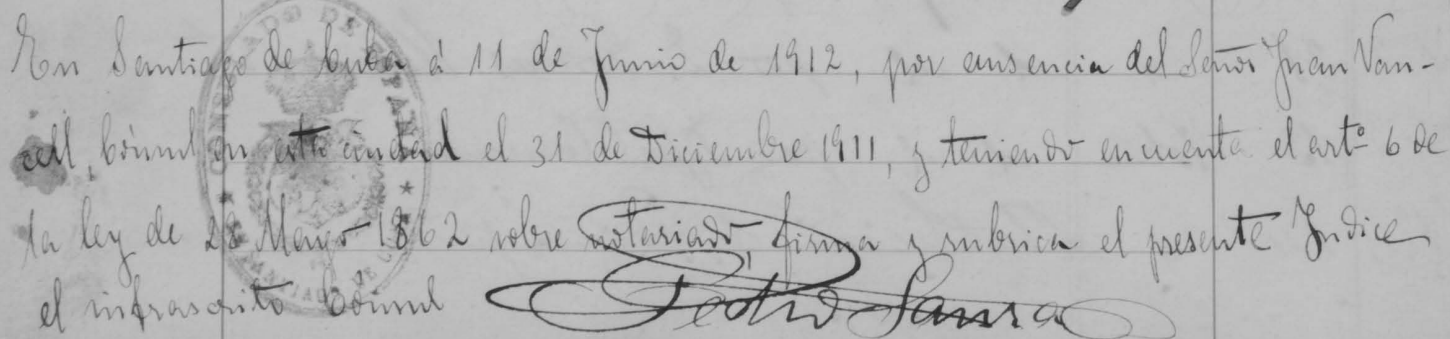 En Santiago de Cuba á 11 de Junio de 1912, por ausencia del Señor Juan Van-
cell, Cónsul en esta ciudad el 31 de Diciembre 1911, y teniendo en cuenta el artº 6 de
la ley de 28 Marzo 1862 sobre notariado, firma y rubrica el presente Indice
el infrascrito Cónsul Pedro Saura